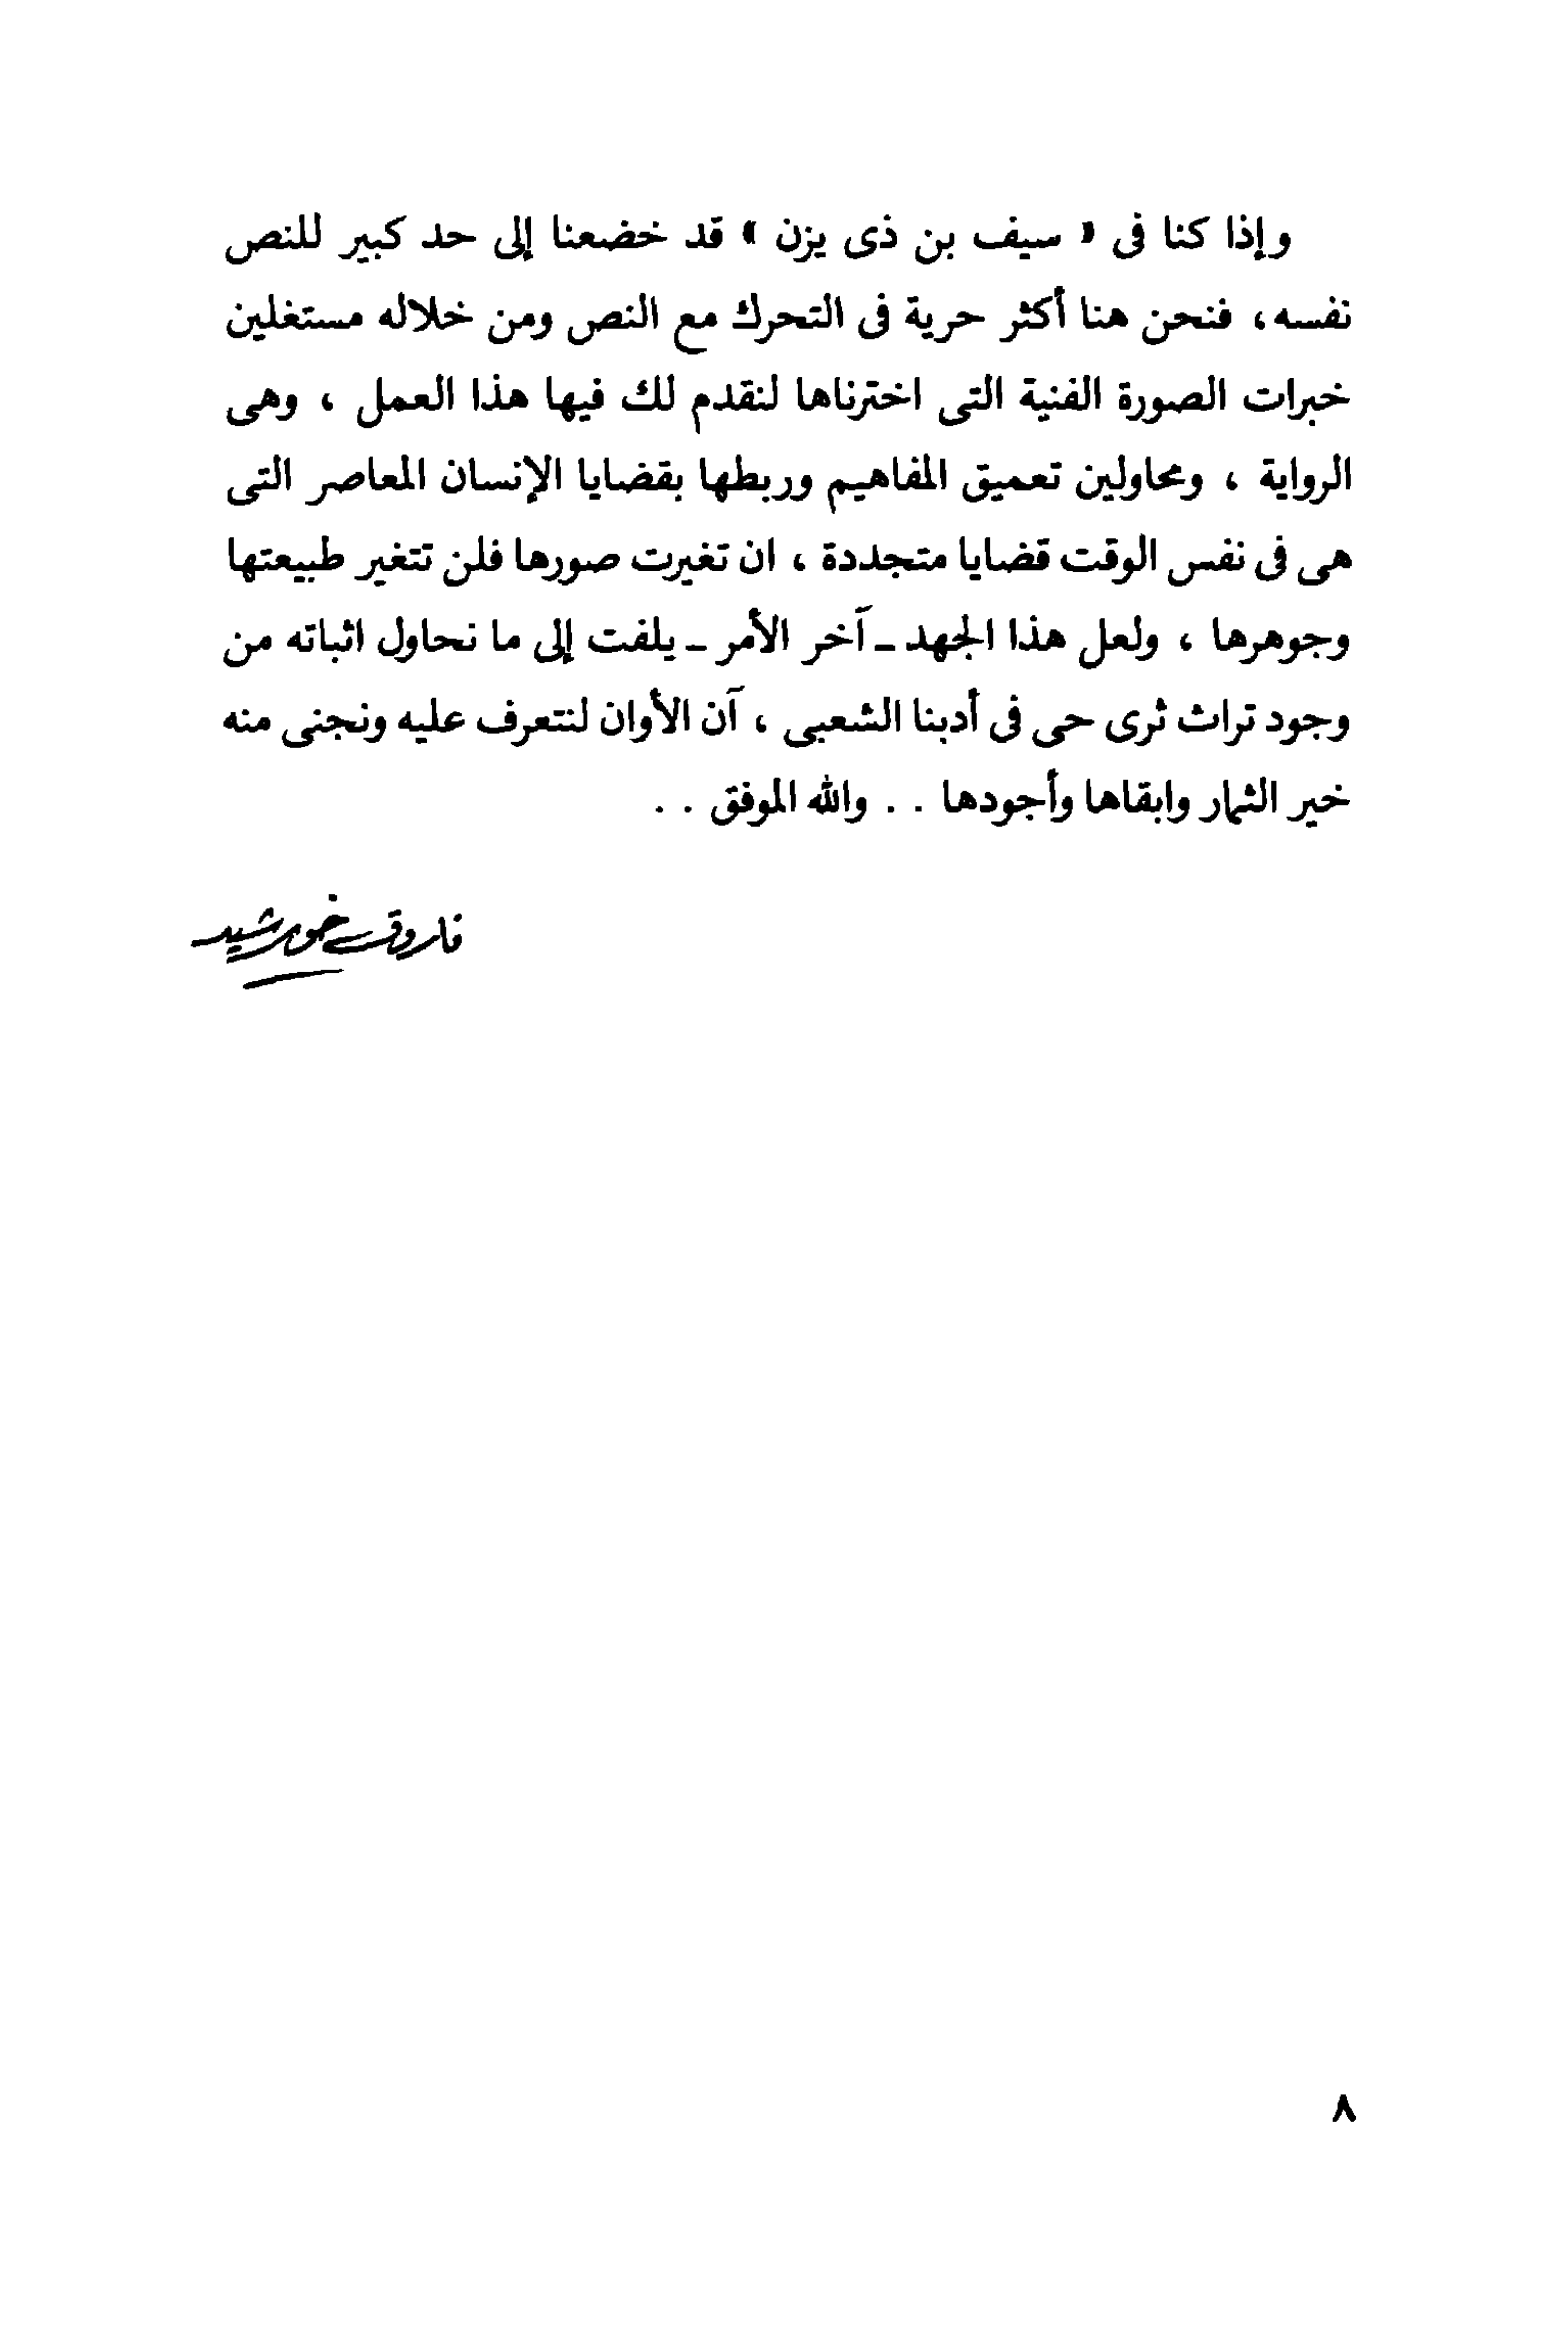 وإذا كنا فى « سيف بن ذى يزن » قد خضعنا إلى حد كبير للنص
نفسه، فنحن هنا أكثر حرية فى التحرك مع النص ومن خلاله مستغلين
خبرات الصورة الفنية التى اخترناها لنقدم لك فيها هذا العمل ، وهى
الرواية ، ومحاولين تعميق المفاهيم وربطها بقضايا الإنسان المعاصر التى
هى فى نفس الوقت قضايا متجددة ، ان تغيرت صورها فلن تتغير طبيعتها
وجوهرها ، ولعل هذا الجهد ـ آخر الأمر ـ يلفت إلى ما نحاول اثباته من
وجود تراث ثرى حى فى أدبنا الشعبى ، آن الأوان لنتعرف عليه ونجنى منه
خير الثمار وابقاها وأجودها . . والله الموفق . .
فاروق خورشيد
٨